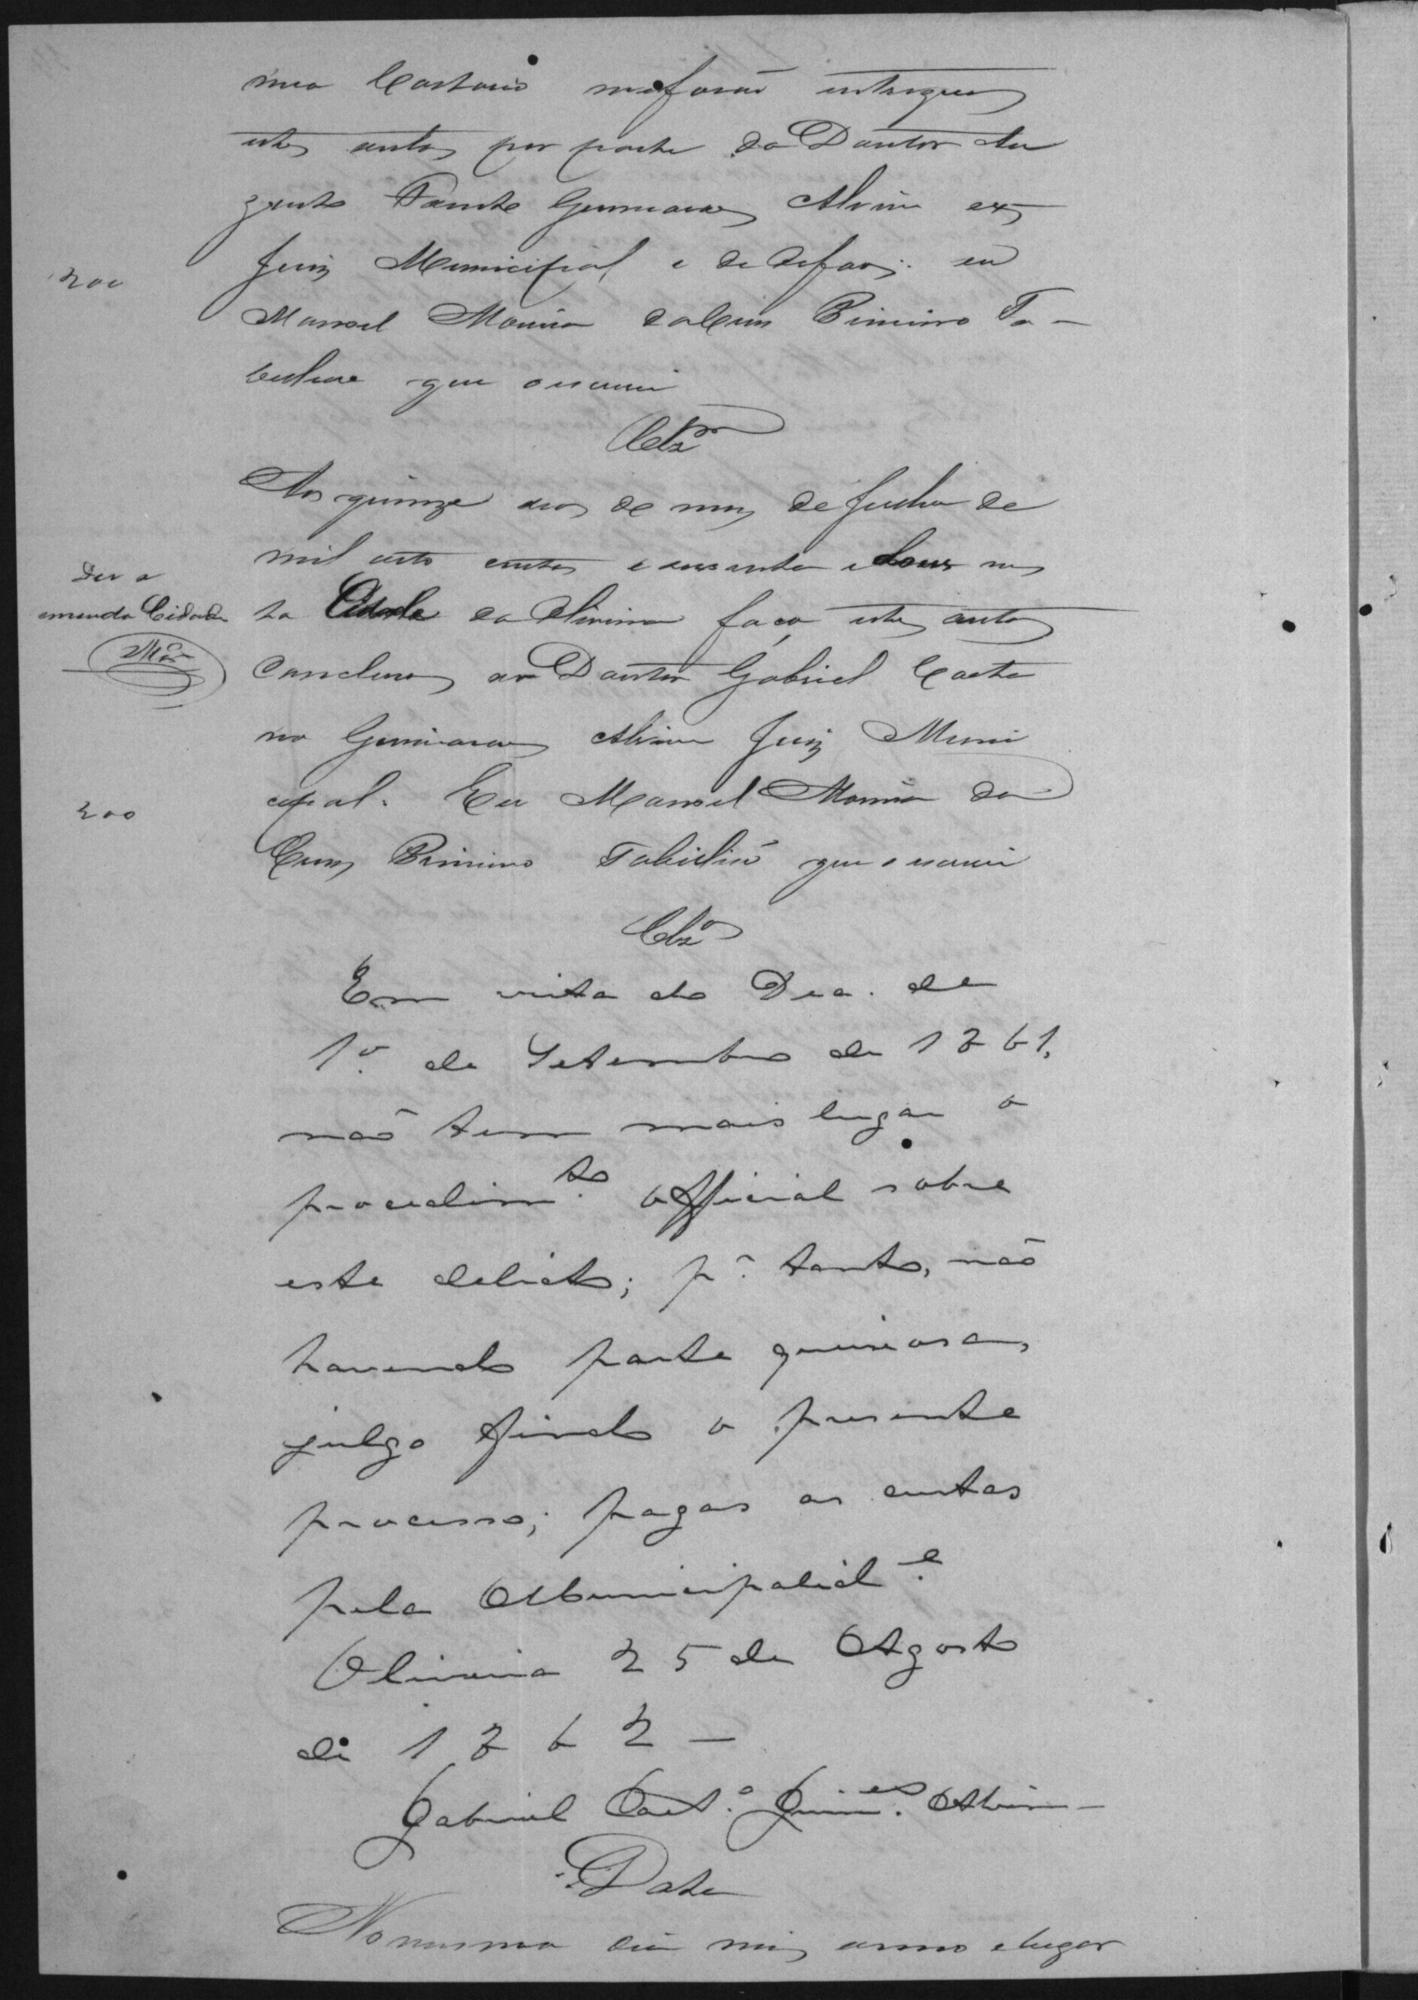 meu Cartorio me forão entregues
estes autos por parte do Doutor Au
gusto Guimaraes Alvim ex
Juiz Municipal e de Orfaos. eu
200
Manoel Moreira da Cruz Primeiro Ta-
belião que o escrevi
Clz.m
Aos quinze dias do mez de Julho de
mil oito centos e secenta e dous nes
Dei a
emenda Cidade
ta Cidade da Oliveira faço estes autos
concluzos ao Doutor Gabriel Caeta
no Guimaraes Alvim Juiz Muni
cipal. Eu Manoel Moreira da
200
Cruz Primeiro Tabelião que o escrevi
Clz.o
Em vista do Dec. de
1º de Setembro de 1861,
não tem mais lugar o
procedim.to official sobre
este delicto; p.r tanto, não
havendo parte queixosa,
julgo findo o presente
processo; pagas as custas
pela Municipalid.e
Oliveira 25 de Agosto
de 1862 —
Gabriel Caet.o Guim.es Alvim —
Data
No mesmo dia mez anno e lugar